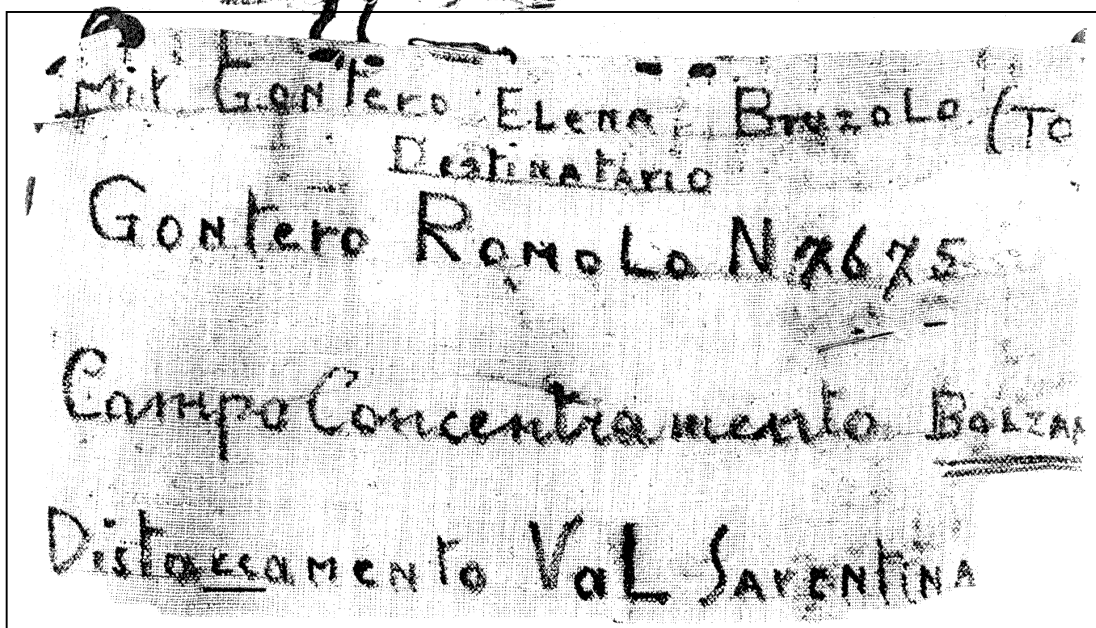 Mit Gontero Elena Bruzolo (TO
Destinatario
Gontero Romolo N 7675
Campo Concentramento Bolzan
Distaccamento Val Sarentina